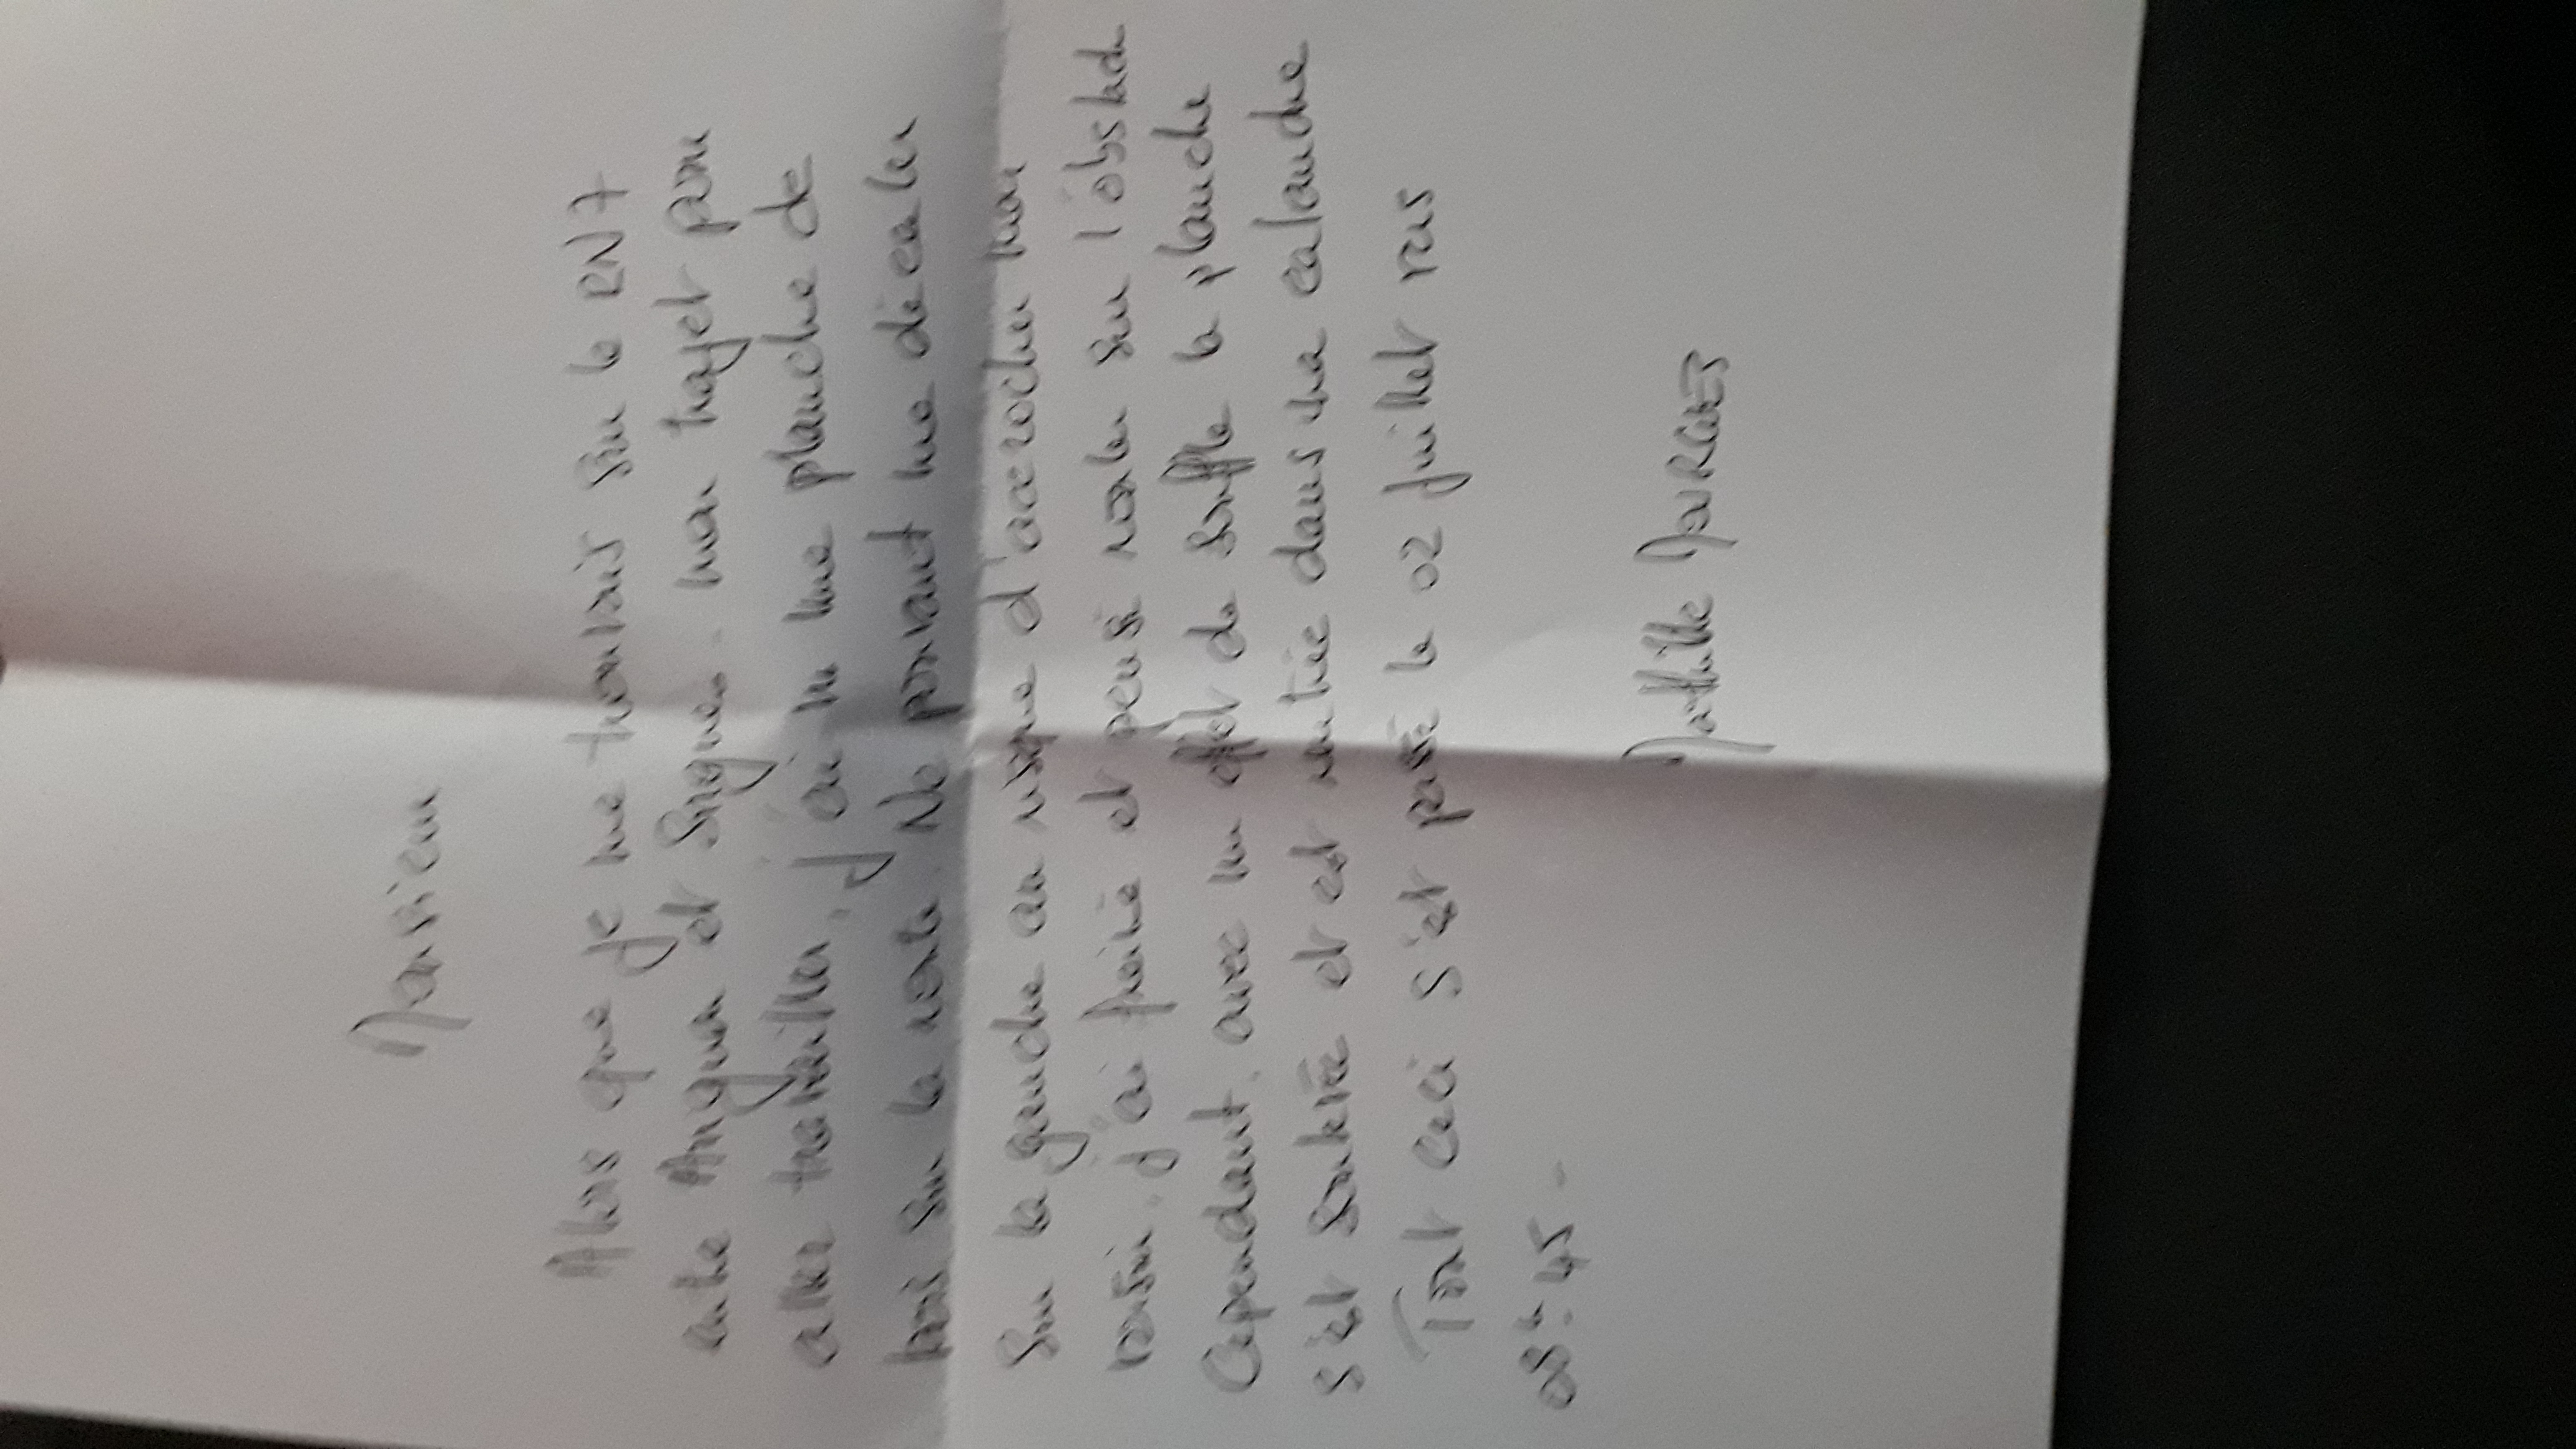 Monsieur
Alors que je me trouvais sur la RN7
entre Avignon et Sorgues. mon trajet pour
aller travailler, j'ai vu une planche de
bois sur la route. Ne pouvant me décaler
sur la gauche au risque d'accrocher mon
voisin. j'ai freiné et pensé rouler sur l'obstacle
Cependant, avec un effet de souffle la planche
s'est soulevée et est rentrée dans ma calandre
Tout ceci s'est passé le 02 juillet vers
08h.45 -
Mathilde